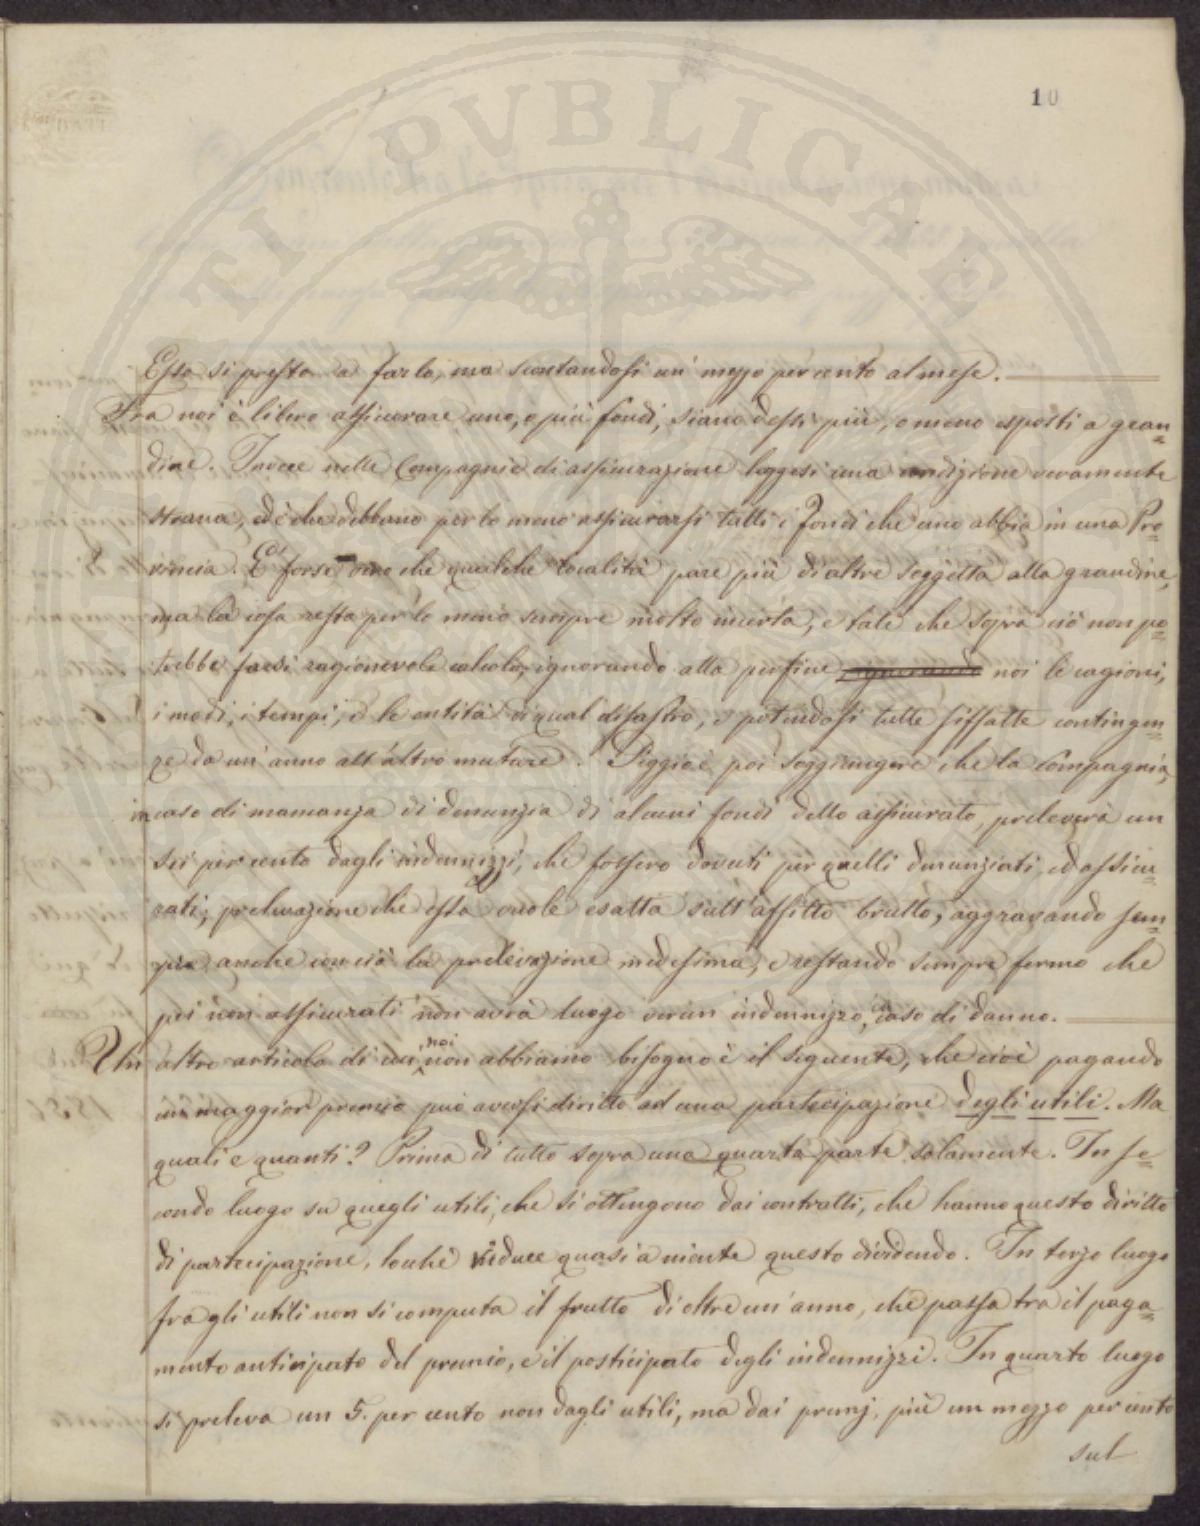 10
Essa si presta a farlo, ma scontandosi un mezzo per cento al mese.
Fra noi è libero assicurare uno, o più fondi, siano dessi più, o meno esposti a gran=
dine. Invece nelle Compagnie di assicurazione leggesi una condizione veramente
strana, ed è che debbano per lo meno assicurarsi tutti i fondi che uno abbia in una Pro
vincia. E' forse vero che qualche località pare più di altre soggetta alla grandine,
ma la cosa resta per lo meno sempre molto incerta, e tale che sopra ciò non po=
trebbe farsi ragionevole calcolo, ignorando alla perfine noi le cagioni,
i modi, i tempi, e le entità di qual disastro, e potendosi tutte siffatte contingen=
ze da un' anno all' altro mutare. Peggio è poi soggiungere che la Compagnia,
in caso di mancanza di denunzia di alcuni fondi dello assicurato, preleverà un
sei per cento dagli indennizzi, che fossero dovuti per quelli denunziati, ed assicu=
rati; prelevazione che essa vuole esatta sull' affitto brutto, aggravando sem=
pre anche con ciò la prelevazione medesima, e restando sempre fermo che
pei non assicurati non avrà luogo verun indennizzo, in caso di danno.
Un altro articolo di cui noi non abbiamo bisogno è il seguente, che cioè pagando
un maggior premio può aversi diritto ad una partecipazione degli utili. Ma
quali e quanti? Prima di tutto sopra una quarta parte solamente. In se=
condo luogo su quegli utili, che si ottengono dai contratti, che hanno questo diritto
di partecipazione, locchè riduce quasi a niente questo dividendo. In terzo luogo
fra gli utili non si computa il frutto di oltre un' anno, che passa tra il paga=
mento anticipato del premio, e il posticipato degli indennizzi. In quarto luogo
si preleva un 5. per cento non dagli utili, ma dai premj, più un mezzo per cento
sul
TI PVBLICAE